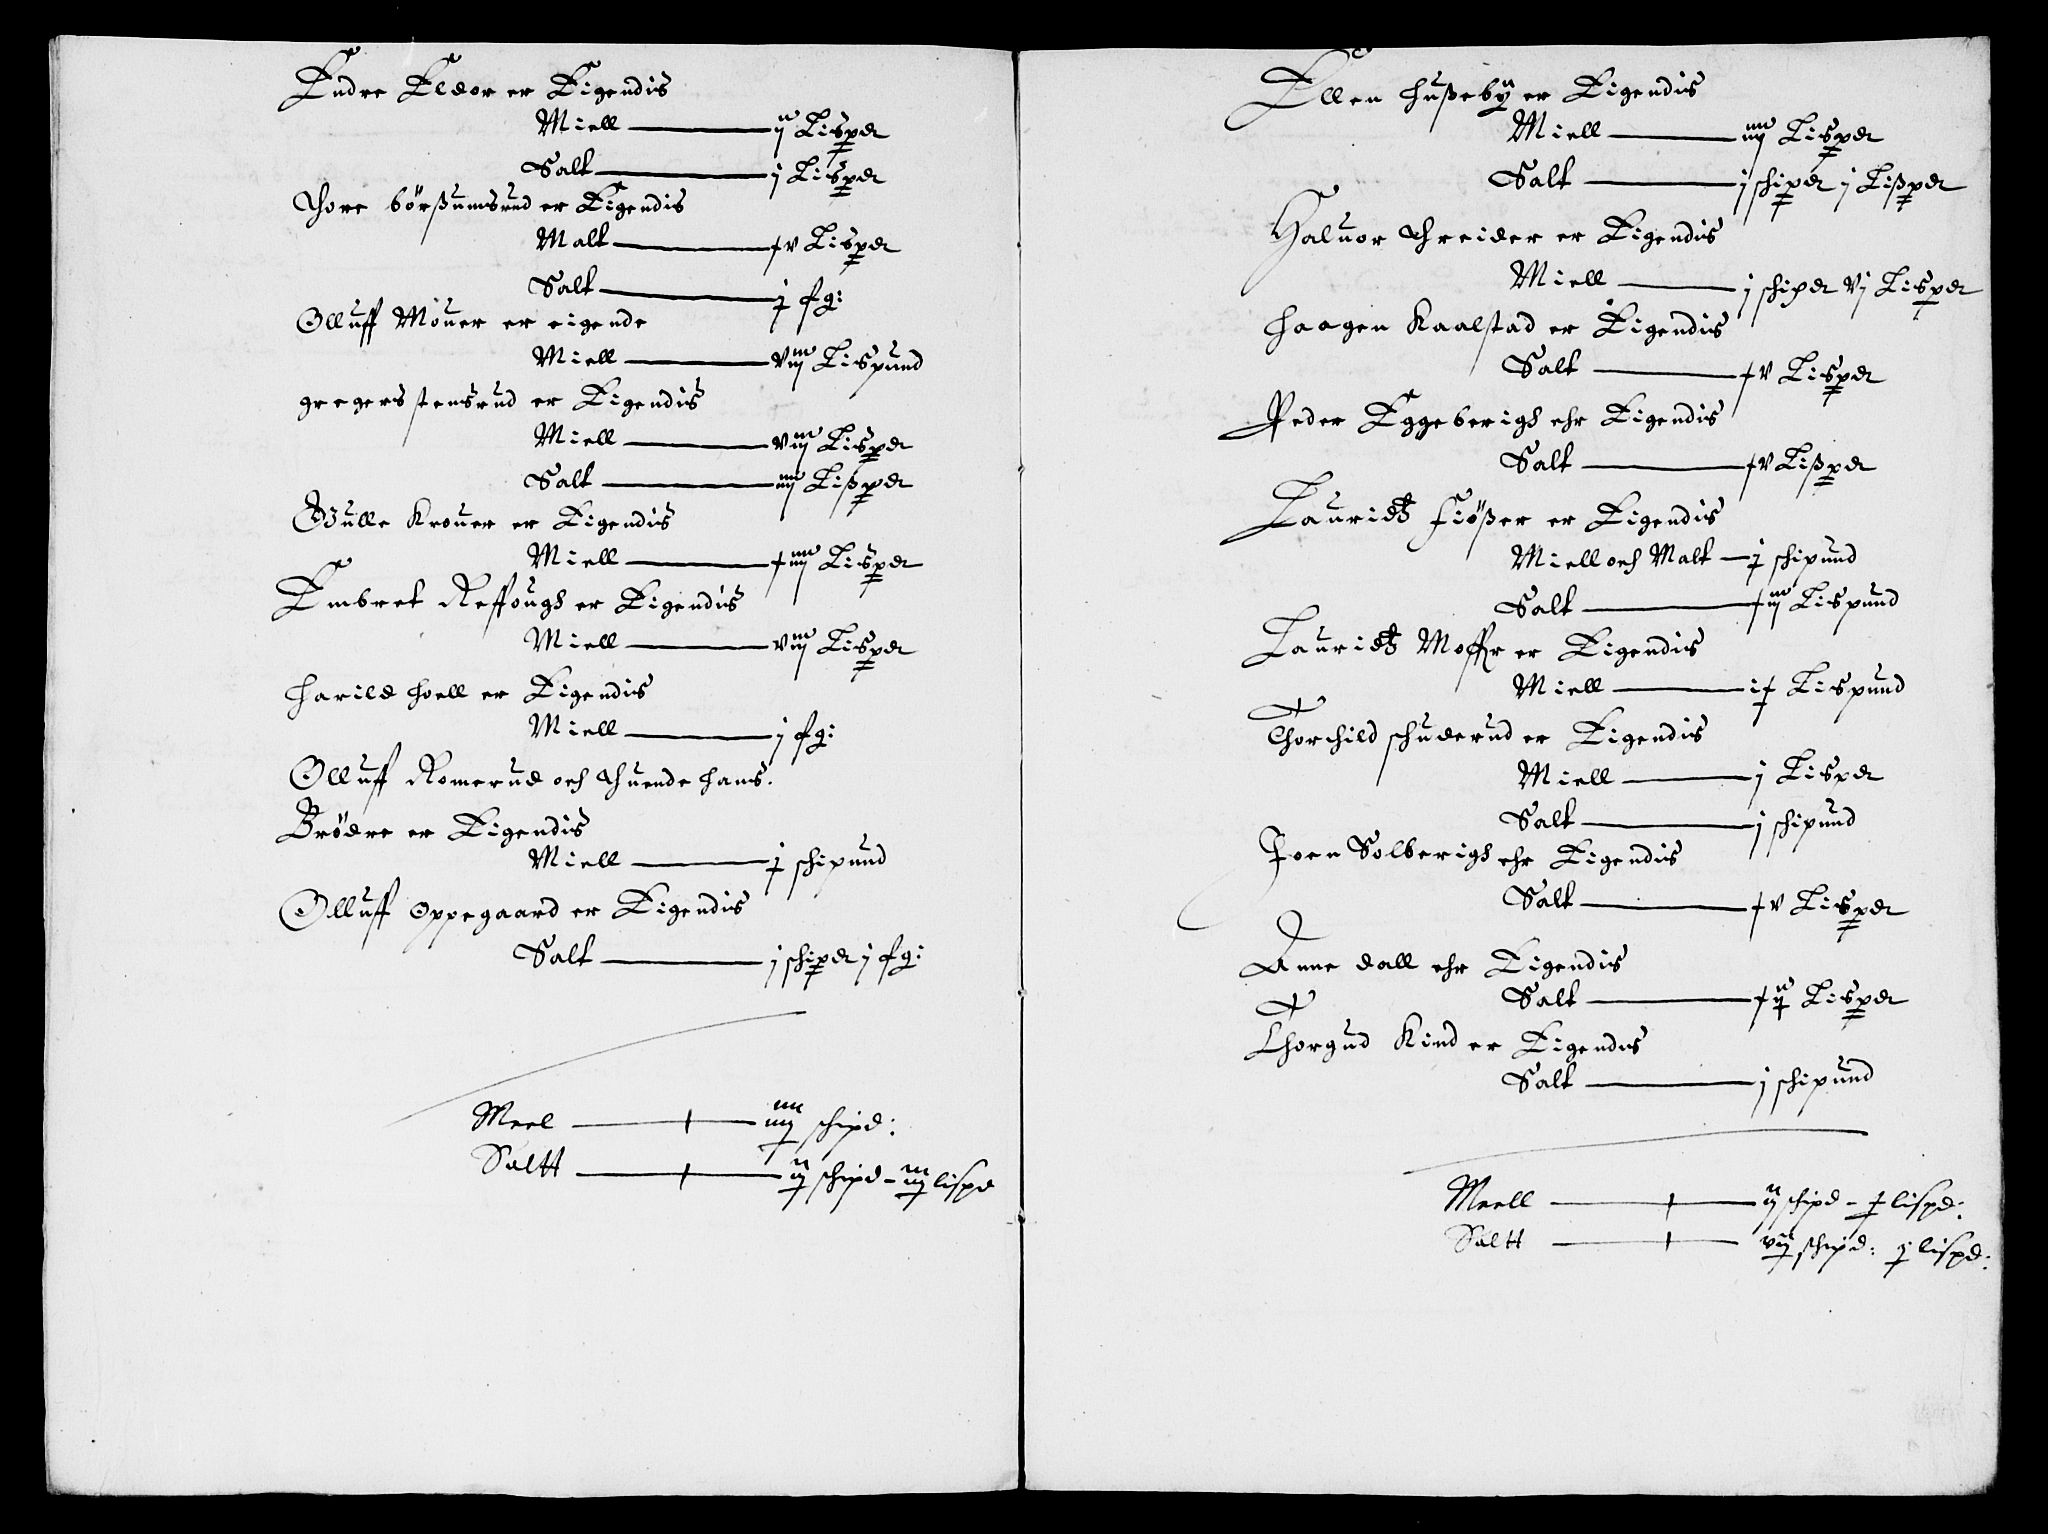 Endre Eldor er Eigendis
Miell — ij Lispdt
Salt — j Lispdt
Thore börßumsrud er Eigendis
Malt — v Lispdt
Salt — j fg:
Olluff Mouer er eigende
Miell — viij Lispund
gregers stensrud er Eigendis
Miell — viij Lispdt
Salt — iiij Lißpdt
Gulle Krouer er Eigendis
Miell — iiij Lispdt
Embret Reffough er Eigendis
Miell — viij Lispdt
Harild hoell er Eigendis
Miell — j fg:
Olluff Romerud och Thuende hans.
Brödre er Eigendis
Miell — j schipund
Olluff oppegaard er Eigendis
Salt — j schipdt j fg:
Meel — iiij schipd:
Saltt — ij schipd – iiij lispd
Ellen Hußeby er Eigendis
Miell — iiij Lispdt
Salt — j schipdt j Lißpdt
Haluor Threider er Eigendis
Miell — j schipdt vj Lispdt
Haagen Kaalstad er Eigendis
Salt — v Lispdt
Peder Eggeberigh ehr Eigendis
Salt — v Lißpdt
Lauridtz fiößer er Eigendis
Miell och Malt — j schipund
Salt — iij Lispund
Lauridtz Moffr er Eigendis
Miell — ij Lispund
Thorchild schuderud er Eigendis
Miell — j Lispdt
Salt — j schipund
Joen Solberigh ehr Eigendis
Salt — v Lispdt
Anne dall ehr Eigendis
Salt — ij Lispdt
Thorgud Kind er Eigendis
Salt — j schipund
Meell — ij schipd – j lispd:
Saltt — vij schipd: j lispd: